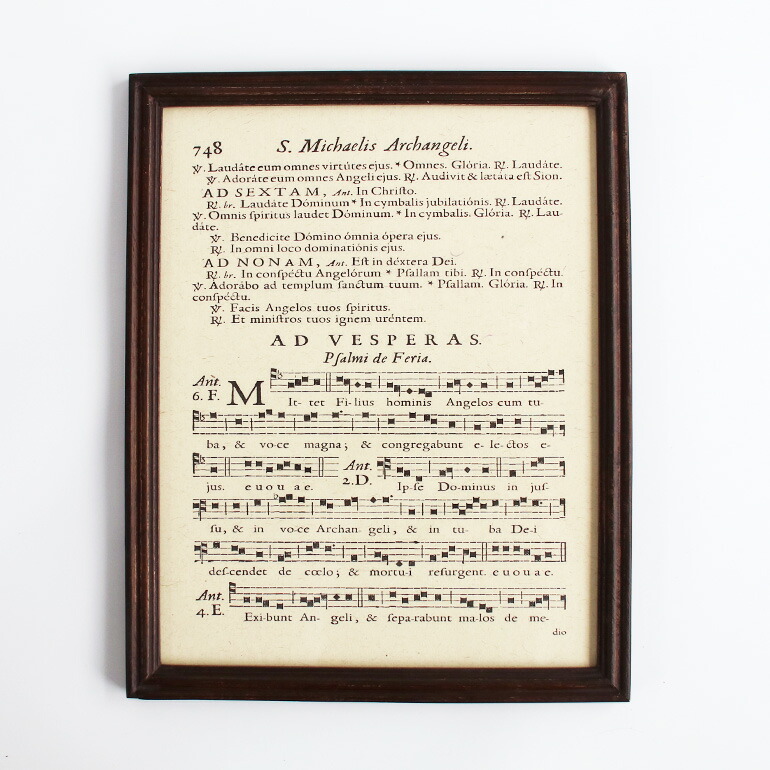 748 S. Michaelis Archangeli.
℣. Laudáte eum omnes virtútes ejus. * Omnes. Glória. ℟. Laudáte.
℣. Adoráte eum omnes Angeli ejus. ℟. Audivit & lætata eſt Sion.
AD SEXTAM, Ant. In Chriſto.
℟. br. Laudáte Dóminum * In cymbalis jubilatiónis. ℟. Laudáte.
℣. Omnis ſpiritus laudet Dóminum. * In cymbalis. Glória. ℟. Lau-
dáte.
℣. Benedicite Dómino ómnia ópera ejus.
℟. In omni loco dominatiónis ejus.
AD NONAM, Ant. Eſt in déxtera Dei.
℟. br. In conſpéctu Angelórum * Pſallam tibi. ℟. In conſpéctu.
℣. Adorábo ad templum ſanctum tuum. * Pſallam. Glória. ℟. In
conſpéctu.
℣. Facis Angelos tuos ſpiritus.
℟. Et miniſtros tuos ignem uréntem.
AD VESPERAS.
Pſalmi de Feria.
Ant.
6. F. M It- tet Fi-lius hominis Angelos cum tu-
ba, & vo-ce magna; & congregabunt e-le-ctos e-
jus. e u o u a e. Ant. 2.D. Ip-ſe Do-minus in juſ-
ſu, & in vo-ce Archan-geli, & in tu- ba De-i
deſ-cendet de cœlo; & mortu-i reſurgent. e u o u a e.
Ant.
4. E. Exi-bunt An- geli, & ſepa-rabunt ma-los de me-
dio